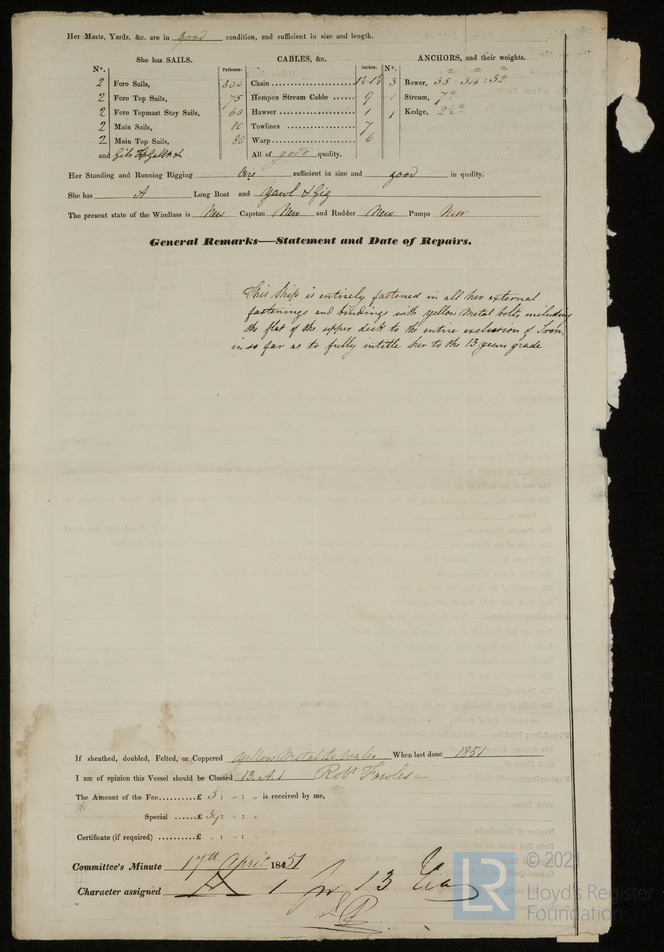 Her Masts, Yards, &c. are in good condition, and sufficient in size and length.
She has SAILS. CABLES, &c. ANCHORS, and their weights.
N°. Fathoms. Inches. N°.
2 Fore Sails, Chain 3 Bower,
2 Fore Top Sails, 75 Hempen Stream Cable 9 1 Stream,
2 Fore Topmast Stay Sails, 60 Hawser 1 1 Kedge,
2 Main Sails, 80 Towlines 7
2 Main Top Sails, 80 Warp 6
and All of good quality.
Her Standing and Running Rigging are sufficient in size and good in quality.
She has A Long Boat and Yawl & Gig
The present state of the Windlass is New Capstan New and Rudder New Pumps New
General Remarks—Statement and Date of Repairs.
This Ship is entirely fastened in all her external
fastenings and bindings with yellow Metal bolts including
the flat of the upper deck to the entire exclusion of Iron,
in so far as to fully intitle her to the 13 years grade
If sheathed, doubled, Felted, or Coppered Yellow Metal to Wales When last done 1851
I am of opinion this Vessel should be Classed 13 A.1 Robt Fowles
The Amount of the Fee.........£ 5 : " : " is received by me,
Special ......£
Certificate (if required) ......£ " : " : "
Committee's Minute 17th April 1851
Character assigned A 1 for 13
© 2021
LR
Lloyd's Register
Foundation